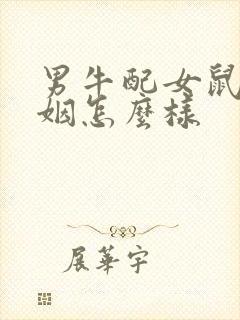 男牛配女鼠
姻怎麼樣
展華宇